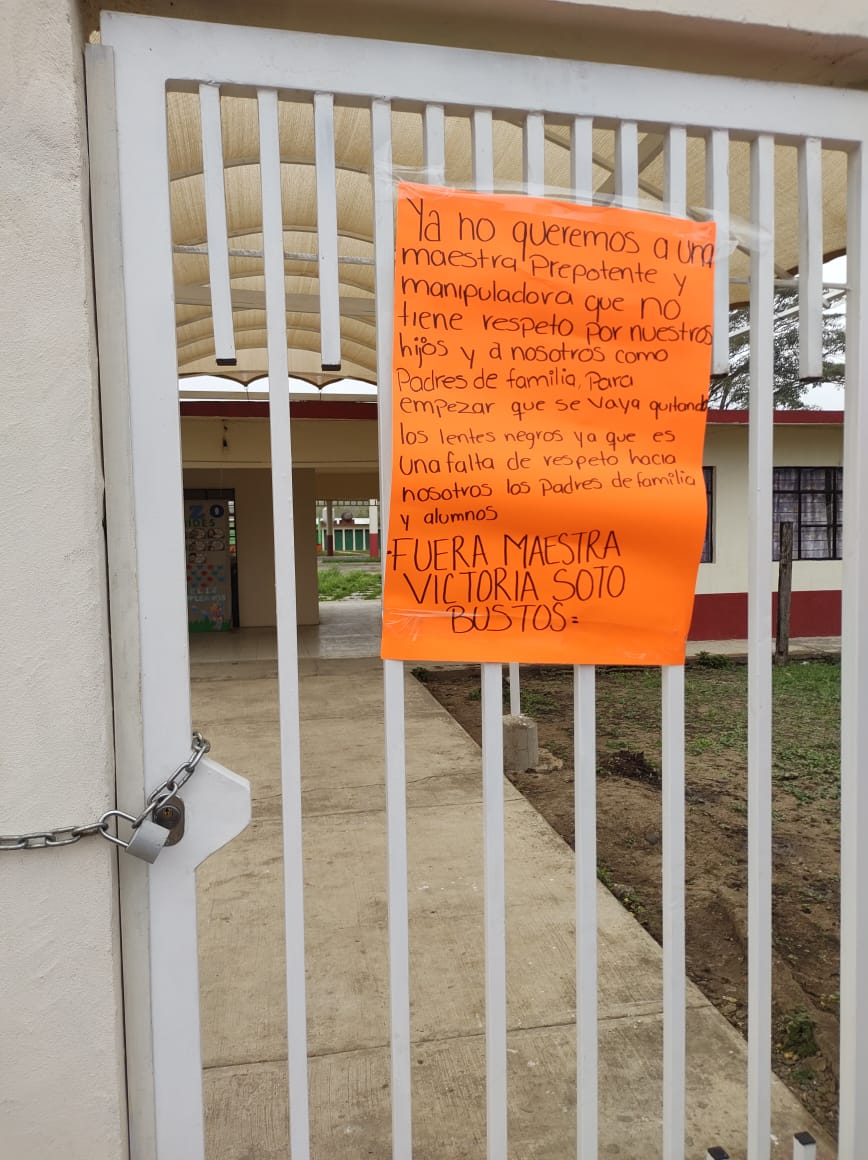 Ya no queremos a una
maestra Prepotente y
manipuladora que no
tiene respeto por nuestros
hijos y a nosotros como
Padres de familia, Para
empezar que se vaya quitando
los lentes negros ya que es
una falta de respeto hacia
nosotros los padres de familia
y alumnos
FUERA MAESTRA
VICTORIA SOTO
BUSTOS=